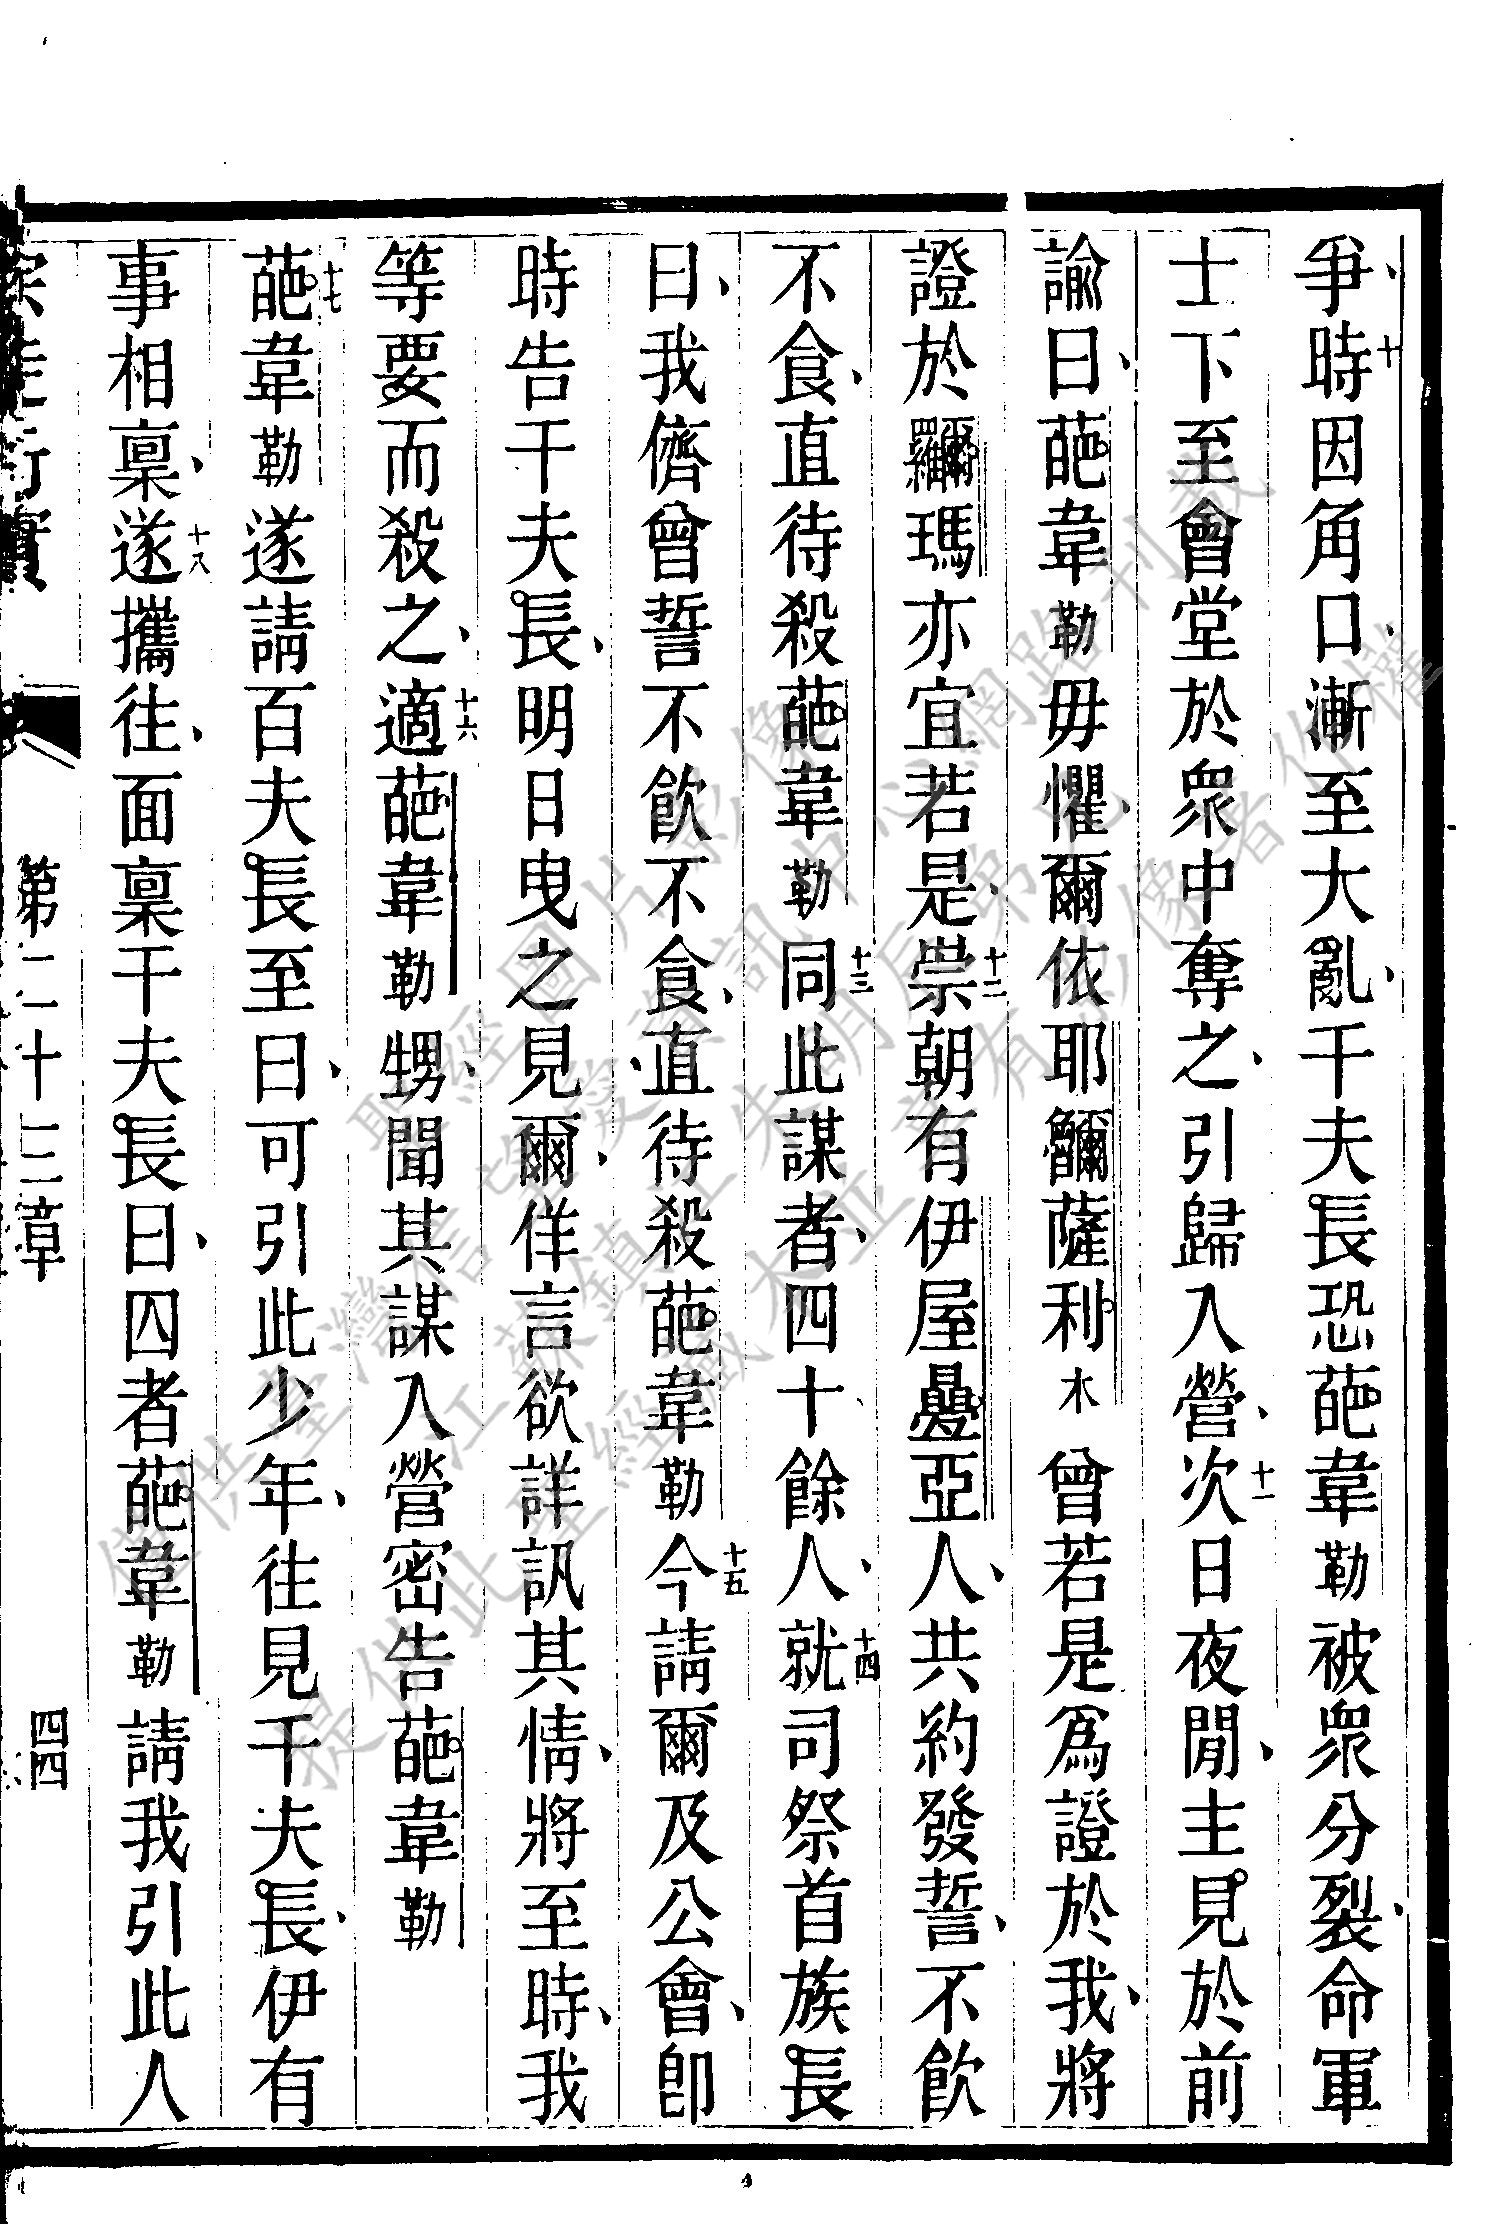 爭、十時因角口、漸至大亂、千夫長恐葩韋勒被眾分裂、命軍
士下至會堂於眾中奪之、引歸入營、十一次日夜閒、主見於前
諭曰、葩韋勒毋懼、爾依耶穌撒利木曾若是爲證於我、將
證於羅瑪亦宜若是、十二崇朝有伊屋疊亞人、共約發誓、不飲
不食、直待殺葩韋勒、十三同此謀者、四十餘人、十四就司祭首族長
曰、我儕曾誓不飲不食、直待殺葩韋勒、十五今請爾及公會、卽
時告千夫長、明日曳之見爾、佯言欲詳訊其情、將至時、我
等要而殺之、十六適葩韋勒甥、聞其謀入營密告葩韋勒
十七葩韋勒遂請百夫長至曰、可引此少年、往見千夫長、伊有
事相稟、十八遂攜往、面稟千夫長曰、囚者葩韋勒請我引此人
行實
第二十三章
四四
僅供臺灣信望愛資訊中心網路刊載